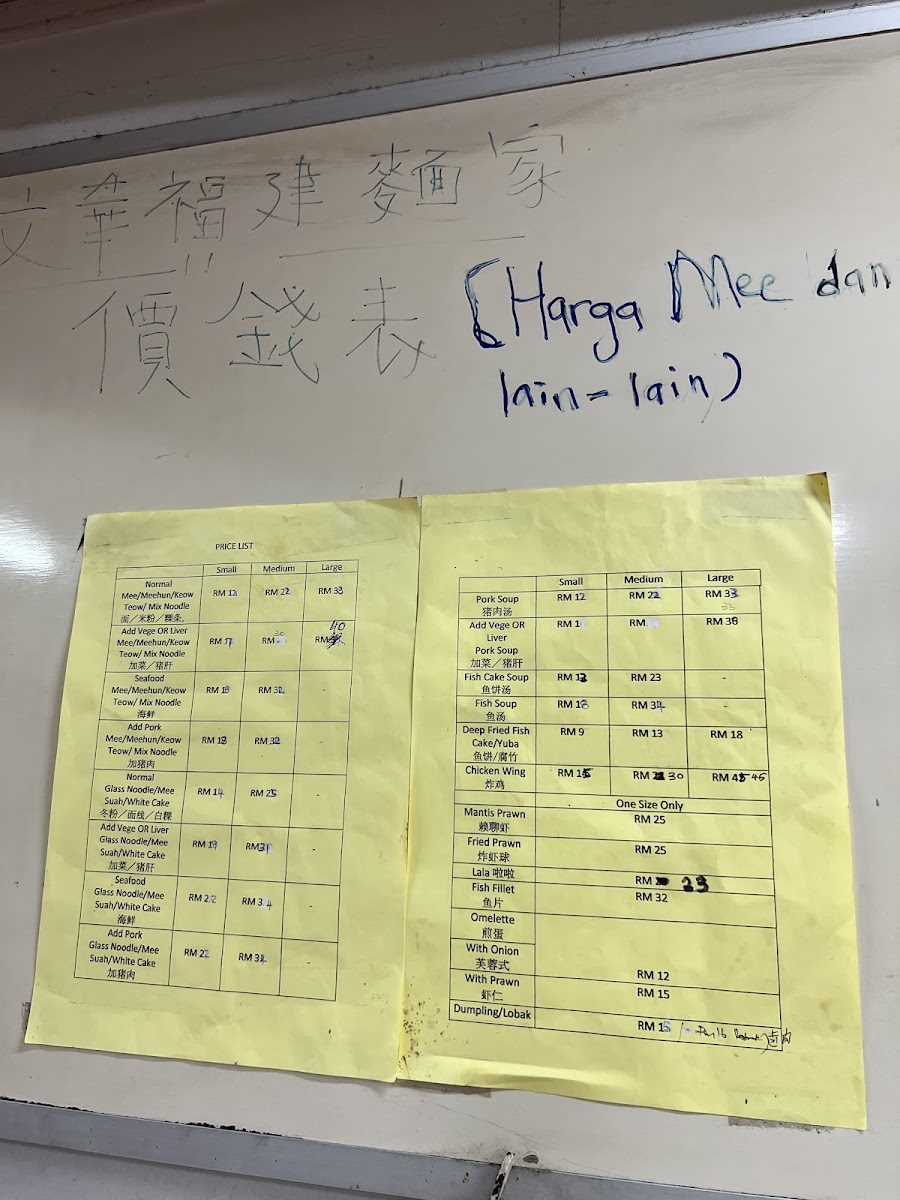 文華福建麵家
價錢表 (Harga Mee dan
lain-lain)
PRICE LIST
Small Medium Large
Normal
Mee/Meehun/Keow
Teow/ Mix Noodle
面/米粉/粿条,
RM 12 RM 22 RM 33
Add Vege OR Liver
Mee/Meehun/Keow
Teow/ Mix Noodle
加菜/猪肝
RM 17 RM 30 RM 40
Seafood
Mee/Meehun/Keow
Teow/ Mix Noodle
海鲜
RM 18 RM 32 -
Add Pork
Mee/Meehun/Keow
Teow/ Mix Noodle
加猪肉
RM 18 RM 32 -
Normal
Glass Noodle/Mee
Suah/White Cake
冬粉/面线/白粿
RM 14 RM 25 -
Add Vege OR Liver
Glass Noodle/Mee
Suah/White Cake
加菜/猪肝
RM 19 RM 31 -
Seafood
Glass Noodle/Mee
Suah/White Cake
海鲜
RM 22 RM 34 -
Add Pork
Glass Noodle/Mee
Suah/White Cake
加猪肉
RM 22 RM 32 -
Small Medium Large
Pork Soup
猪肉汤
RM 12 RM 22 RM 33
33
Add Vege OR
Liver
Pork Soup
加菜/猪肝
RM RM RM 38
Fish Cake Soup
鱼饼汤
RM 13 RM 23 -
Fish Soup
鱼汤
RM 18 RM 34 -
Deep Fried Fish
Cake/Yuba
鱼饼/腐竹
RM 9 RM 13 RM 18
Chicken Wing
炸鸡
RM 15 RM 30 RM 45
One Size Only
Mantis Prawn
赖聊虾
RM 25
Fried Prawn
炸虾球
RM 25
Lala 啦啦
RM 23
Fish Fillet
鱼片
RM 32
Omelette
煎蛋
With Onion
芙蓉式
RM 12
With Prawn
虾仁
RM 15
Dumpling/Lobak
RM 18